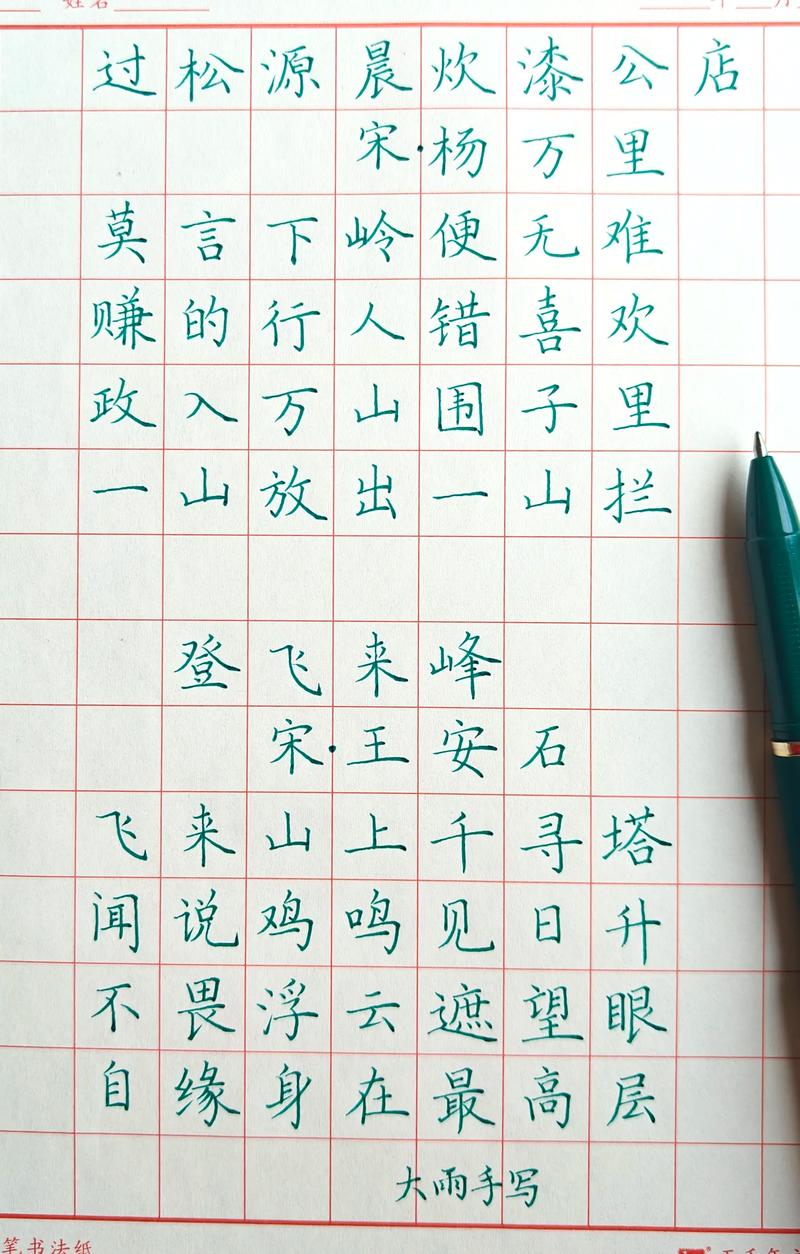 姓名
过松源晨炊漆公店
宋·杨万里
莫言下岭便无难
赚的行人错喜欢
政入万山围子里
一山放出一山拦
登飞来峰
宋·王安石
飞来山上千寻塔
闻说鸡鸣见日升
不畏浮云遮望眼
自缘身在最高层
大雨手写
笔书法纸